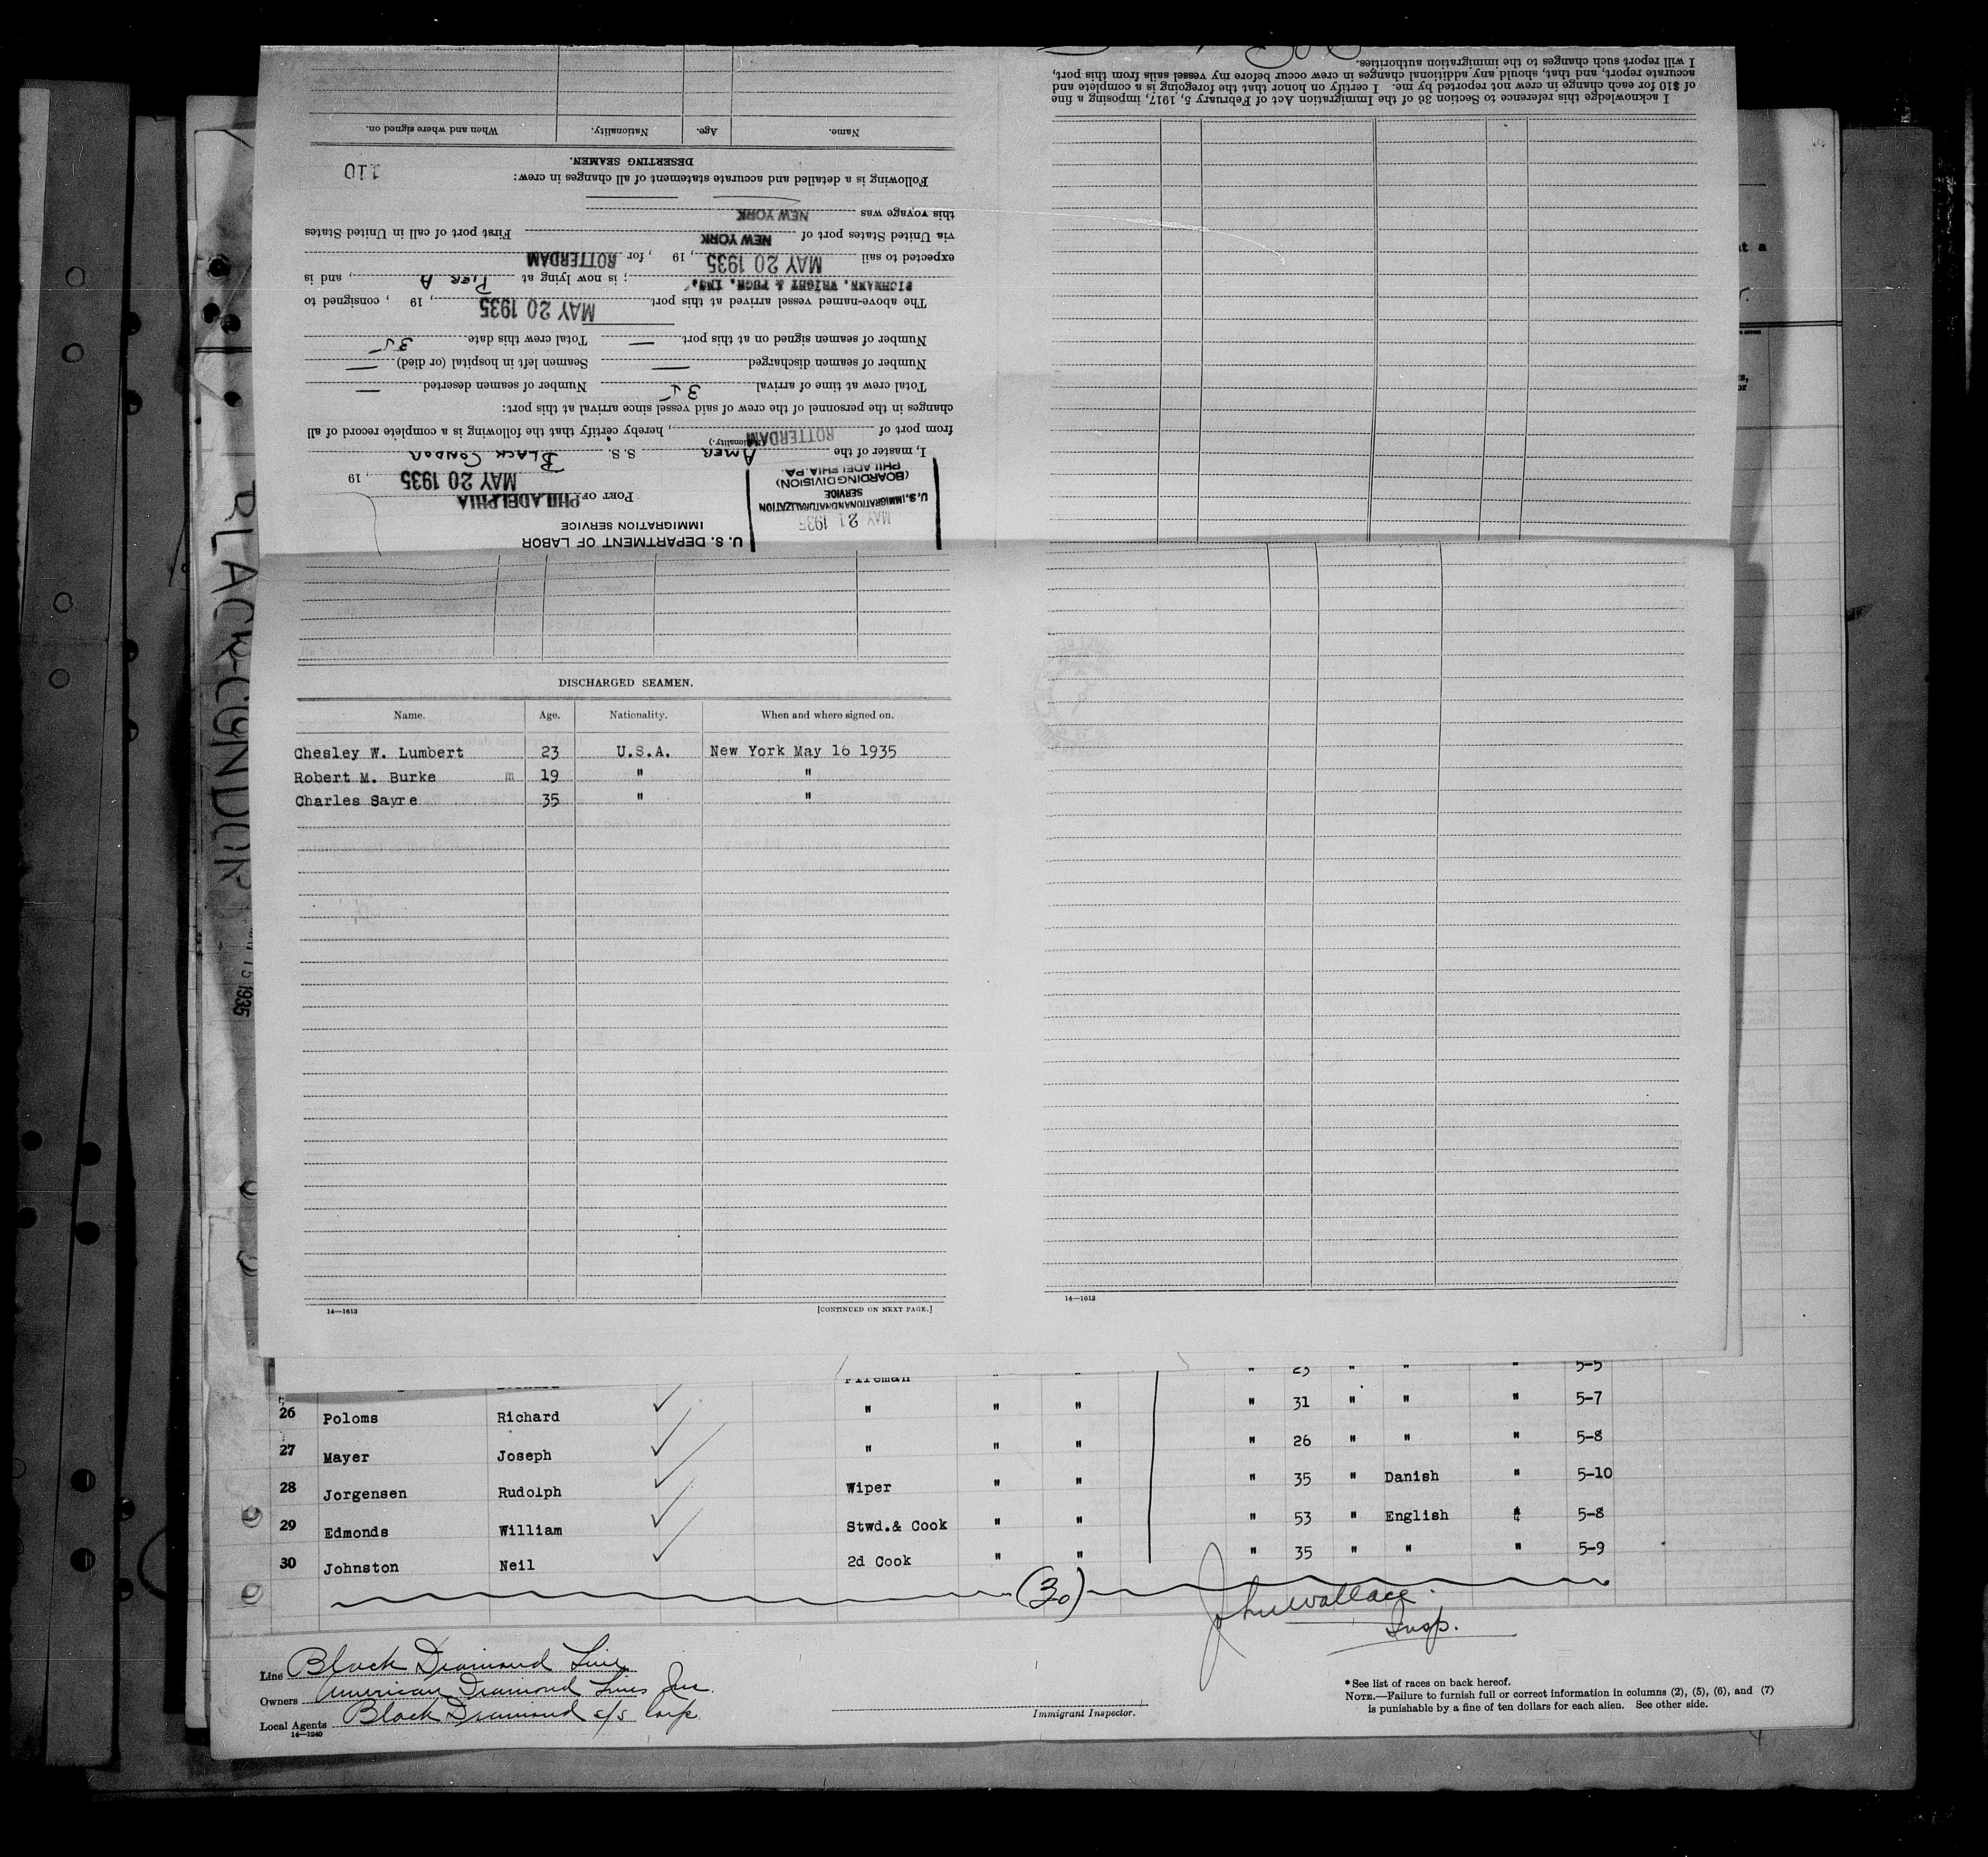 BLACK CONDOR
1935
U. S. DEPARTMENT OF LABOR
IMMIGRATION SERVICE
MAY 21 1935
U.S. IMMIGRATION AND NATURALIZATION
SERVICE
(BOARDING DIVISION)
PHILADELPHIA, PA.
PORT OF PHILADELPHIA MAY 20 1935, 19
I, master of the AMER S. S. BLACK CONDOR
(Nationality.)
from port of ROTTERDAM, hereby certify that the following is a complete record of all
changes in the personnel of the crew of said vessel since arrival at this port:
Total crew at time of arrival 35 Number of seamen deserted —
Number of seamen discharged — Seamen left in hospital (or died) —
Number of seamen signed on at this port — Total crew this date 35
The above-named vessel arrived at this port MAY 20 1935, 19 , consigned to
RICHMANN, WRIGHT & PUGH, INC. ; is now lying at PIER A, and is
expected to sail MAY 20 1935, 19 , for ROTTERDAM
via United States port of NEW YORK First port of call in United States
this voyage was NEW YORK
Following is a detailed and accurate statement of all changes in crew:
110
DESERTING SEAMEN.
Name. Age. Nationality. When and where signed on.
I acknowledge this reference to Section 36 of the Immigration Act of February 5, 1917, imposing a fine
of $10 for each change in crew not reported by me. I certify on honor that the foregoing is a complete and
accurate report, and that, should any additional changes in crew occur before my vessel sails from this port,
I will report such changes to the immigration authorities.
DISCHARGED SEAMEN.
Name. Age. Nationality. When and where signed on.
Chesley W. Lumbert 23 U.S.A. New York May 16 1935
Robert M. Burke m 19 " "
Charles Sayre 35 " "
14—1613 [CONTINUED ON NEXT PAGE.]
14—1613
Fireman " " " 25 " " " 5-5
26 Poloms Richard " " " " 31 " " " 5-7
27 Mayer Joseph " " " " 26 " " " 5-8
28 Jorgensen Rudolph Wiper " " " 35 " Danish " 5-10
29 Edmonds William Stwd.& Cook " " " 53 " English " 5-8
30 Johnston Neil 2d Cook " " " 35 " " " 5-9
(30)
John Wallace
Insp.
Line Black Diamond Line
Owners American Diamond Lines Inc.
Local Agents Black Diamond S/S Corp.
14—1240
Immigrant Inspector.
* See list of races on back hereof.
NOTE.—Failure to furnish full or correct information in columns (2), (5), (6), and (7)
is punishable by a fine of ten dollars for each alien. See other side.